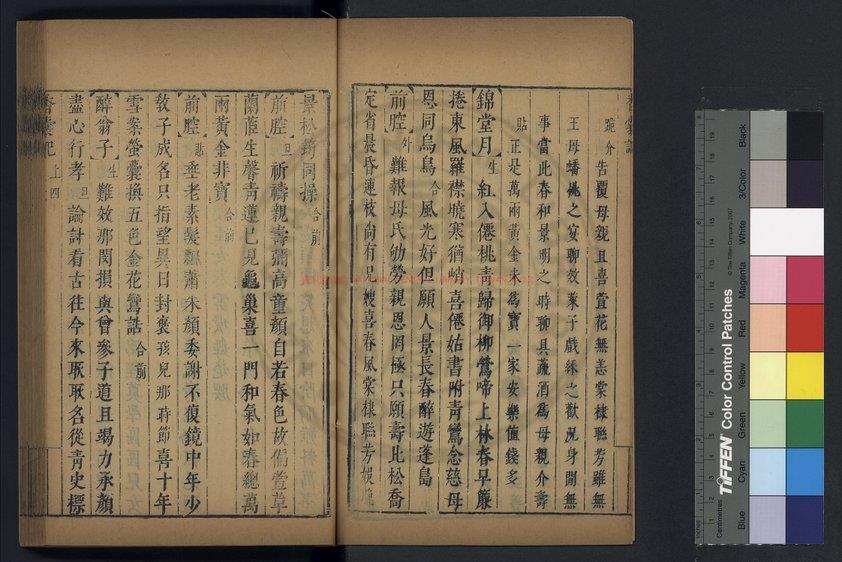 跪介 告覆母親且喜萱花無恙棠棣聯芳雖無
王母蟠桃之宴聊效萊子戲綵之歡況身閒無
事當此春和景明之時聊具蔬酒爲母親介壽
貼 正是萬兩黃金未爲寶一家安樂値錢多
錦堂月 生 紅入僊桃青歸御柳鶯啼上林春早簾
捲東風羅襟曉寒猶峭喜僊姑書附青鸞念慈母
恩同烏鳥 合 風光好但願人景長春醉遊蓬島
前腔 外 難報母氏劬勞親恩罔極只願壽比松喬
定省晨昏連枝尚有兄嫂喜春風棠棣聯芳娛晚
景松筠同操 合前
前腔 旦 祈禱親壽彌高童顏自若春色故偏萱草
蘭蓀生馨青蓮已見龜巢喜一門和氣如春總萬
兩黃金非寶 合前
前腔 貼 垂老素髮飄蕭朱顏委謝不復鏡中年少
敎子成名只指望異日封褒孩兒那時節喜十年
雪案螢囊換五色金花鸞誥 合前
醉翁子 生 難效那閔損與曾參子道且竭力承顏
盡心行孝 旦 論討看古往今來耿耿名從青史標
上 四
TIFFEN Color Control Patches
© The Tiffen Company, 2007
Blue
Cyan
Green
Yellow
Red
Magenta
White
3/Color
Black
Inches
Centimetres